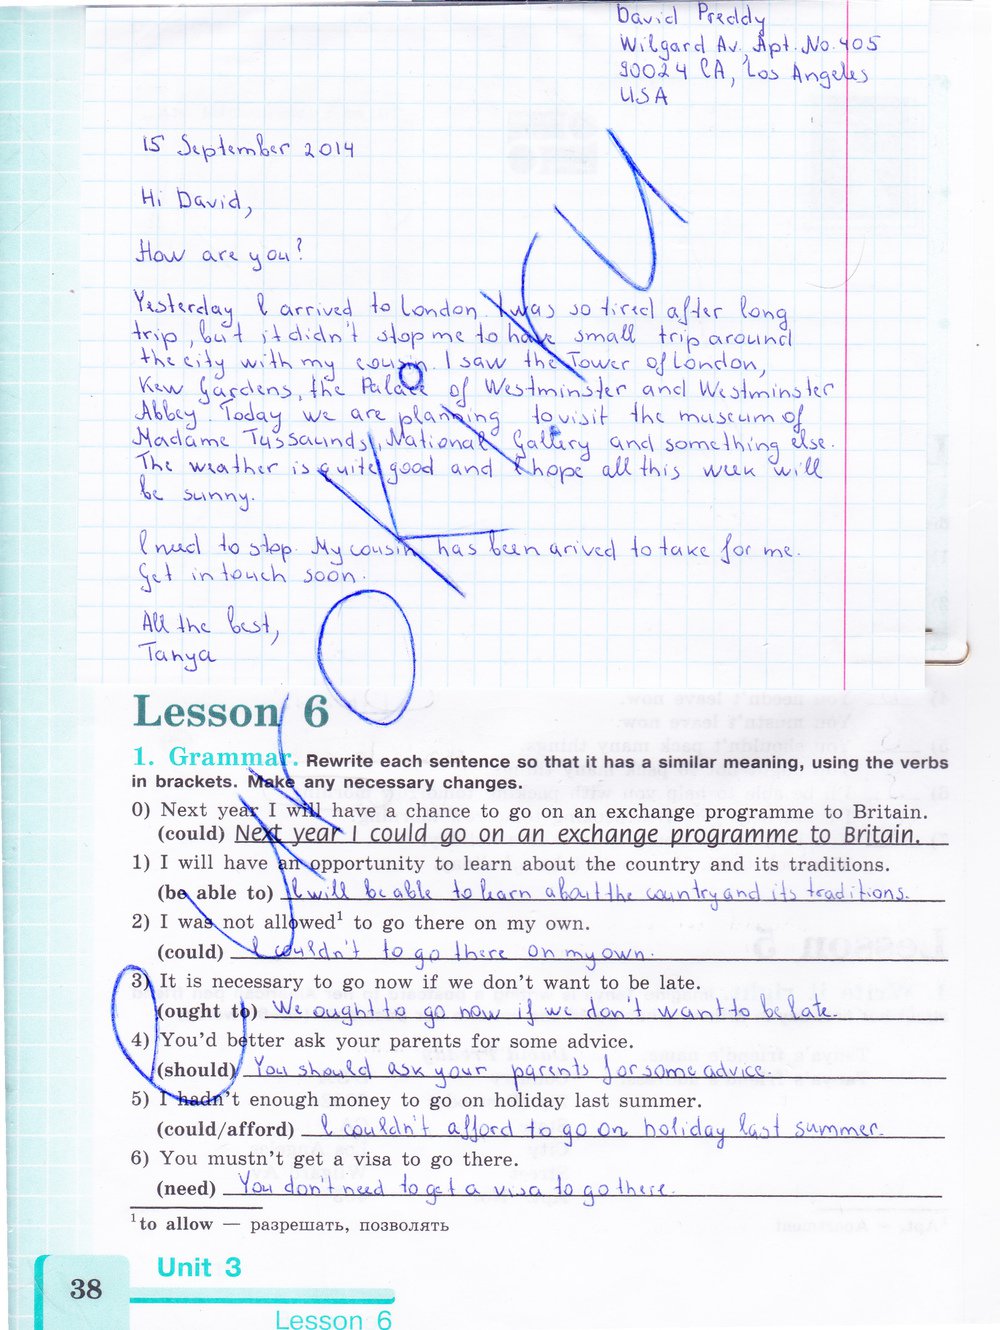 David Preddy
Wilgard Av., Apt. No. 405
90024 CA, Los Angeles
USA
15 September 2014
Hi David,
How are you?
Yesterday I arrived to London. I was so tired after long
trip, but it didn't stop me to have small trip around
the city with my cousin. I saw the Tower of London,
Kew Gardens, the Palace of Westminster and Westminster
Abbey. Today we are planning to visit the museum of
Madame Tussaunds, National Gallery and something else.
The weather is quite good and I hope all this week will
be sunny.
I need to stop. My cousin has been arived to take for me.
Get in touch soon.
All the best,
Tanya
Lesson 6
1. Grammar. Rewrite each sentence so that it has a similar meaning, using the verbs
in brackets. Make any necessary changes.
0) Next year I will have a chance to go on an exchange programme to Britain.
(could) Next year I could go on an exchange programme to Britain.
1) I will have an opportunity to learn about the country and its traditions.
(be able to) I will be able to learn about the country and its traditions.
2) I was not allowed¹ to go there on my own.
(could) I couldn't to go there on my own.
3) It is necessary to go now if we don't want to be late.
(ought to) We ought to go now if we don't want to be late.
4) You'd better ask your parents for some advice.
(should) You should ask your parents for some advice.
5) I hadn't enough money to go on holiday last summer.
(could/afford) I couldn't afford to go on holiday last summer.
6) You mustn't get a visa to go there.
(need) You don't need to get a visa to go there.
¹ to allow — разрешать, позволять
38
Unit 3
Lesson 6